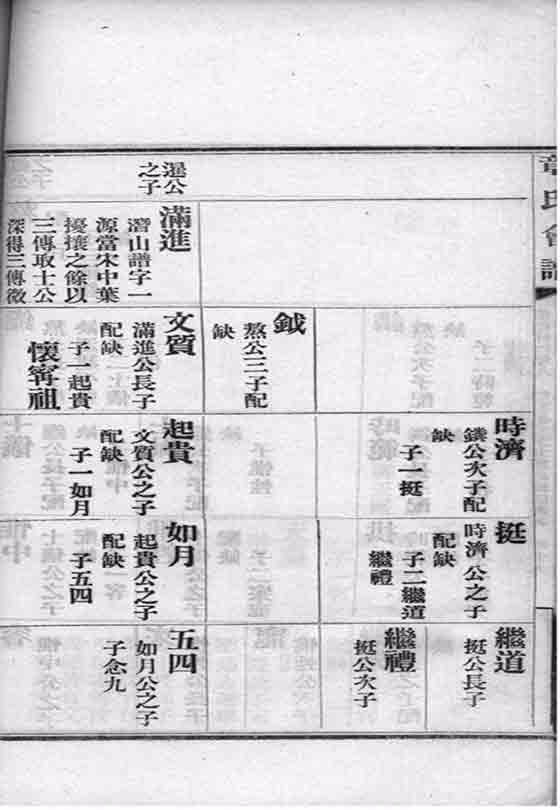 章氏會譜
時濟
鐀公次子配
缺
子一挺
挺
時濟公之子
配缺
子二繼道
繼禮
繼道
挺公長子
繼禮
挺公次子
鉞
熬公三子配
缺
暹公
之子
滿進
濳山譜字一
源當宋中葉
擾攘之餘以
三傳取士公
深得三傳微
文質
滿進公長子
配缺
子一起貴
懷寗祖
起貴
文質公之子
配缺
子一如月
如月
起貴公之子
配缺
子五四
五四
如月公之子
子念九